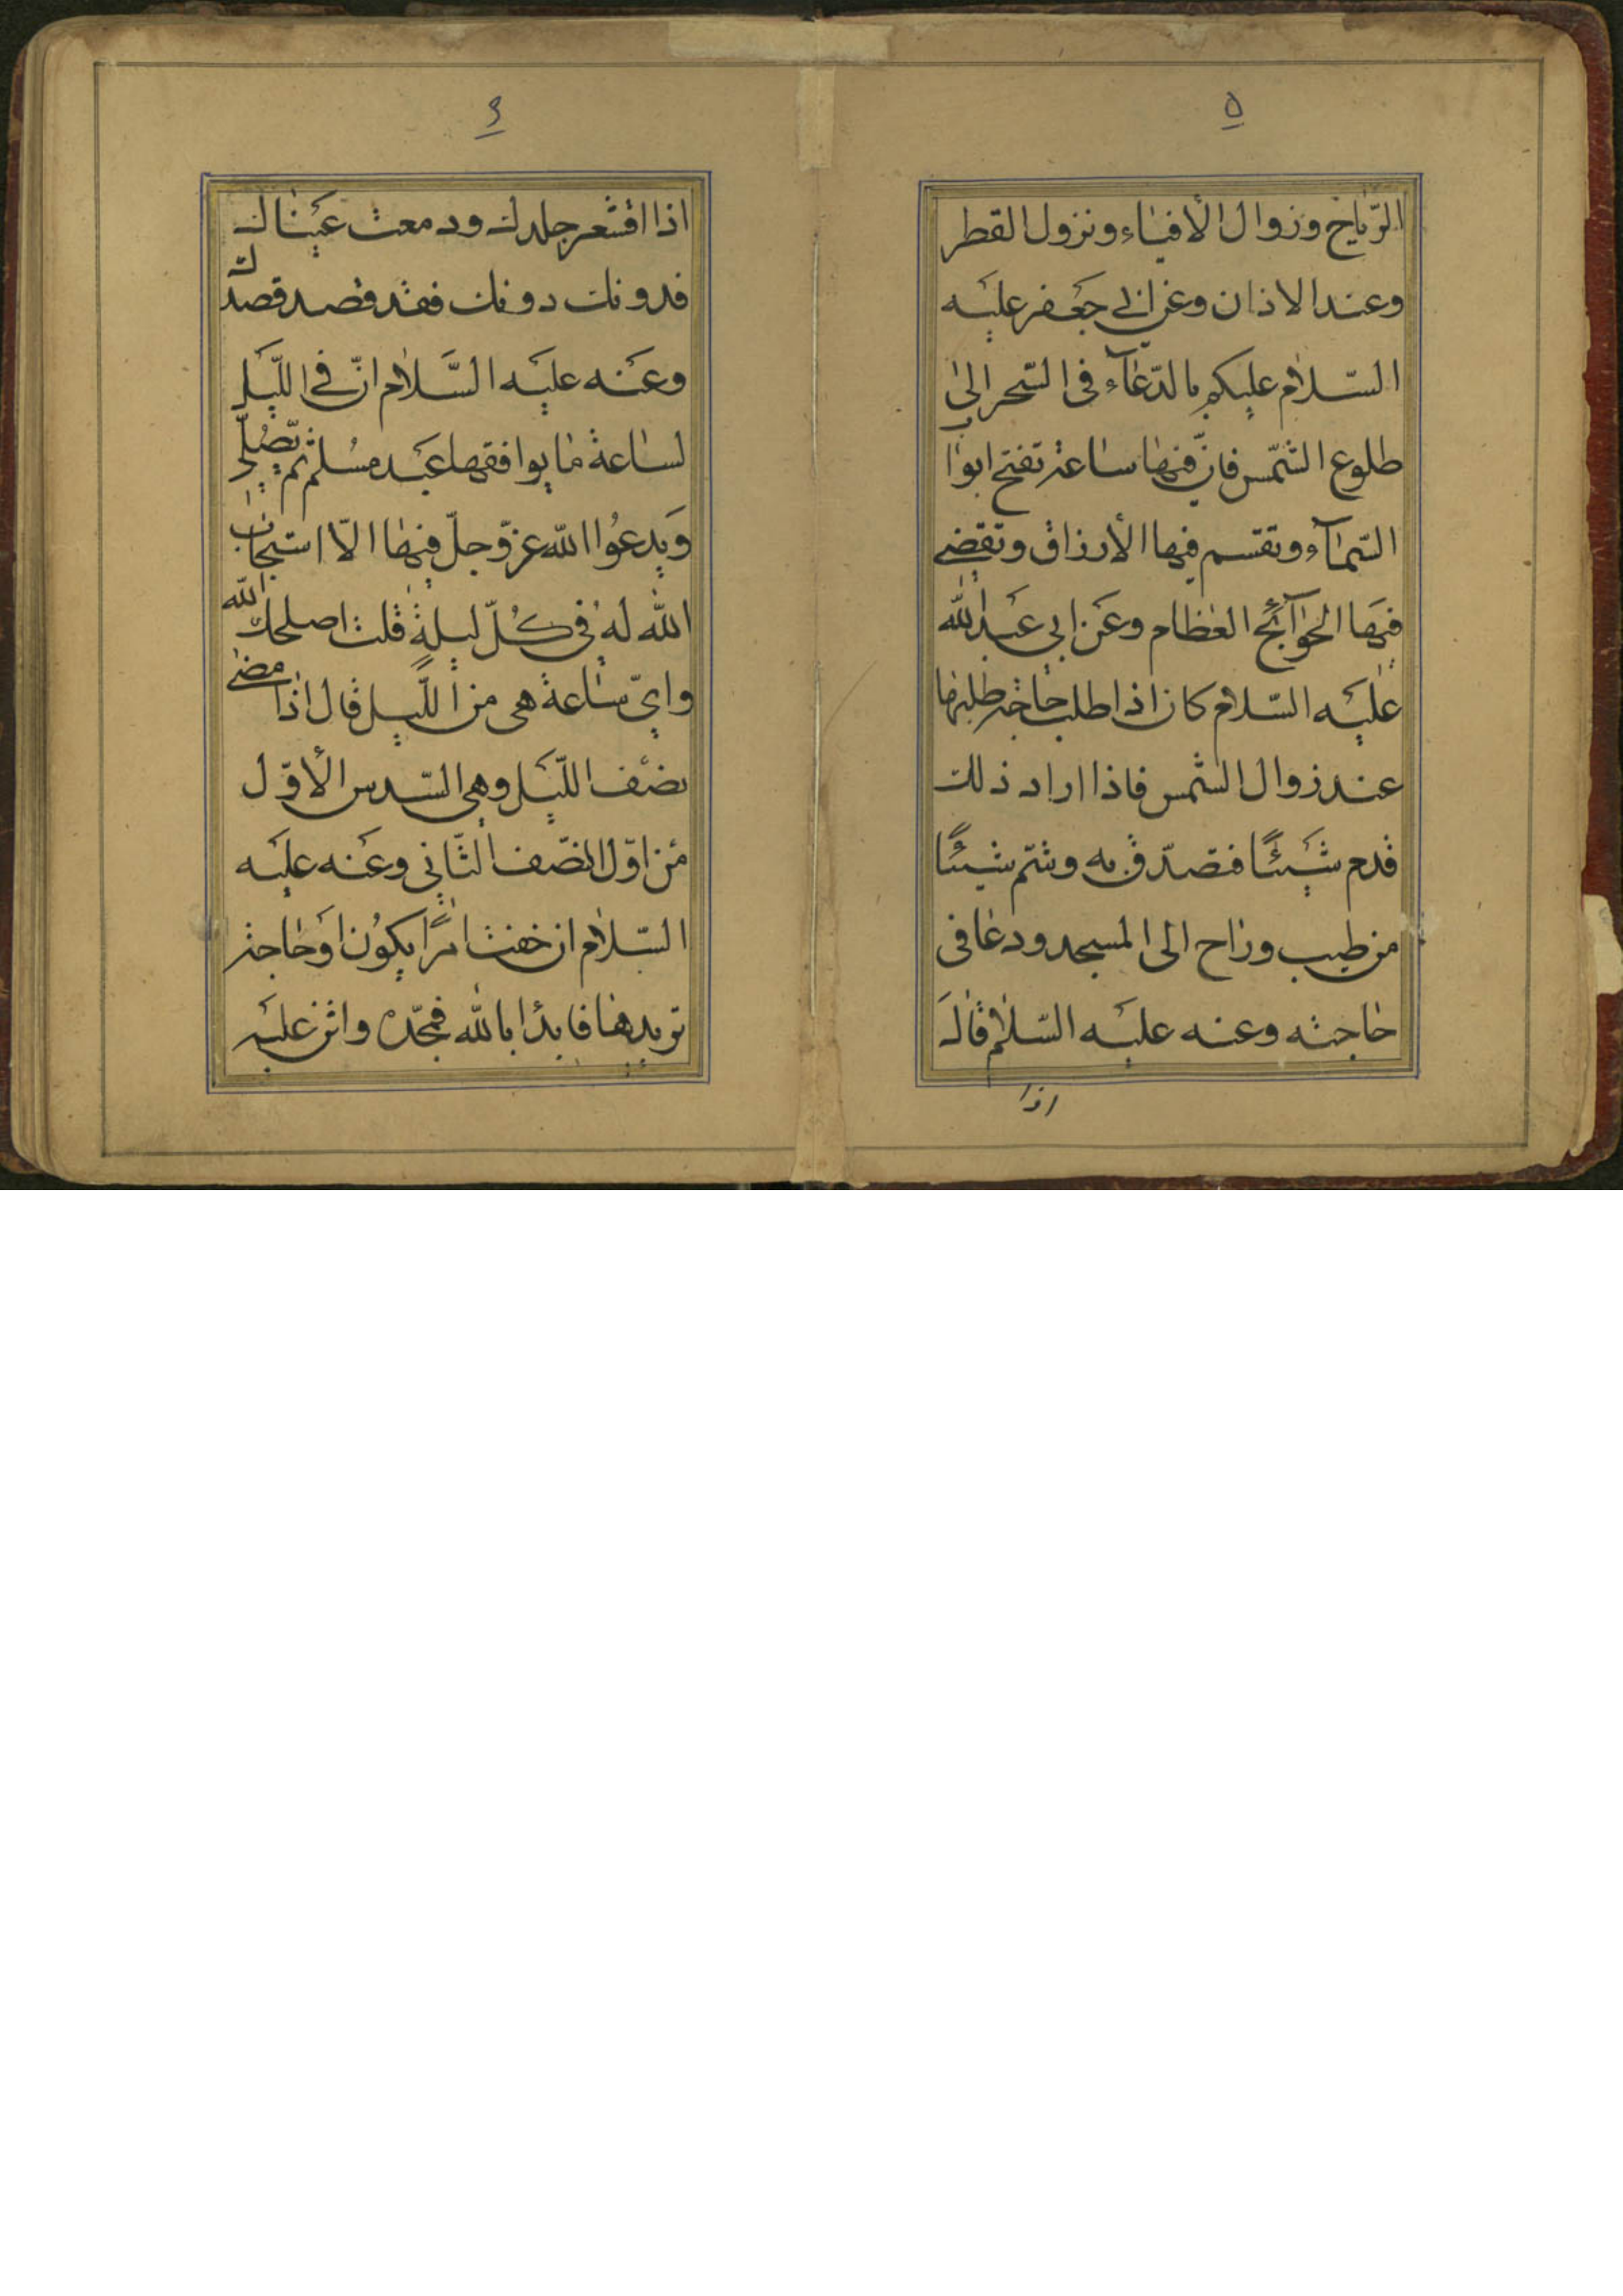 ۵
الرّياح وزوال الأفياء ونزول القطر
وعند الاذان وعن ابي جَعفر عليَه
السّلام عليكم بالدّعآء فى السّحر الىٰ
طلوع الشّمس فانّ فيها ساعة تفتح ابواب
السّمآء وتقسم فيها الأرزاق وتقضى
فيهَا الحوَآئج العظام وعَن ابي عَبد الله
عليَه السّلام كان اذا طلب حاجة طلبها
عند زوال الشمس فاذا اراد ذلك
قدم شَيئًا فتصدّق به وشمّ شيئًا
من طيب وراح الى المسجد ودعا فى
حاجته وعنه عليَه السّلام قالَ
اذا
۶
اذا اقشعر جلدك ودمعت عَيناك
فدونك دونك فقد قصد قصدك
وعَنه عليَه السَّلام انّ في اللّيَل
لساعة ما يوافقها عَبد مسُلم ثم يصُلّي
وَيدعُوا الله عزّ وجلّ فيها الّا استجاب
الله لهُ في كُلّ ليلةٍ قلت اصلحك الله
وايّ ساعة هى من اللّيل قال اذا مضىٰ
نصْف اللّيَل وهي السّدس الأوّل
مْن اوّل النصّف الثّاني وعَنه عليَه
السّلام ان خفت امرًا يكوُن اوَ حاجة
تريدها فابدْا بالله فمجّده واثن عليَه